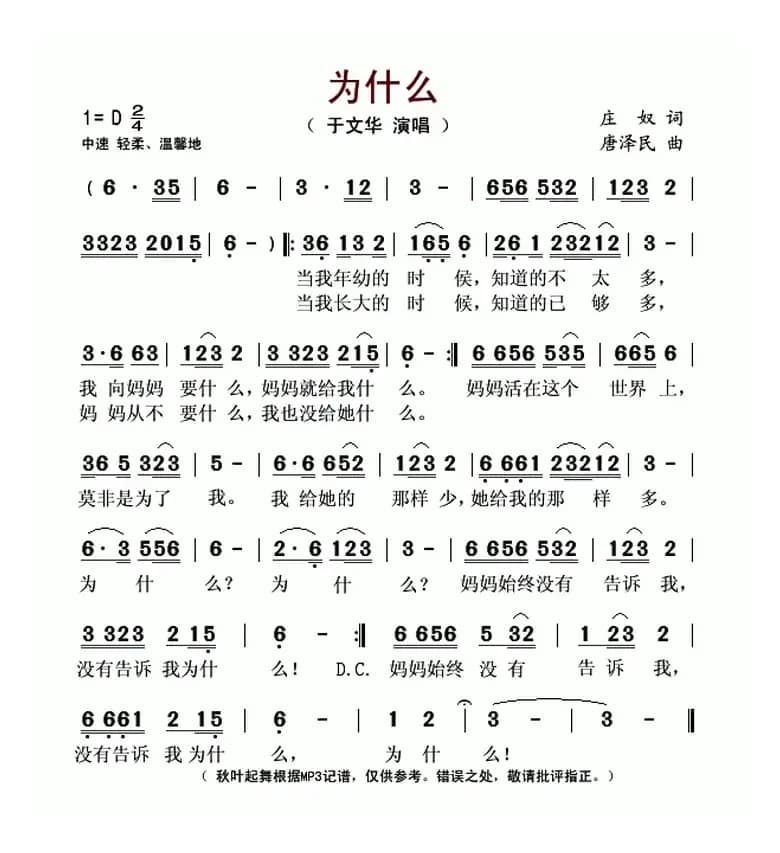 为什么
1= D 2/4
（ 于文华 演唱 ）
庄 奴 词
中速 轻柔、温馨地
唐泽民 曲
( 6 · 35 | 6 - | 3 · 12 | 3 - | 656 532 | 123 2 |
3323 2015 | 6 - ) ‖: 36 13 2 | 165 6 | 26 1 23212 | 3 - |
当我年幼的 时 侯，知道的不 太 多，
当我长大的 时 候，知道的已 够 多，
3·6 63 | 123 2 | 3 323 215 | 6 - :‖ 6 656 535 | 665 6 |
我 向妈妈 要什 么，妈妈就给我什 么。 妈妈活在这个 世界 上，
妈 妈从不 要什 么，我也没给她什 么。
36 5 323 | 5 - | 6·6 652 | 123 2 | 6 661 23212 | 3 - |
莫非是为了 我。 我 给她的 那样 少，她给我的那 样 多。
6· 3 556 | 6 - | 2· 6 123 | 3 - | 6 656 532 | 123 2 |
为 什 么？ 为 什 么？ 妈妈始终没有 告诉 我，
3 323 2 15 | 6 - :‖ 6 656 5 32 | 1 23 2 |
没有告诉 我为什 么！ D.C. 妈妈始终 没 有 告 诉 我，
6 661 2 15 | 6 - | 1 2 | 3 - | 3 - ‖
没有告诉 我 为什 么， 为 什 么！
（ 秋叶起舞根据MP3记谱，仅供参考。错误之处，敬请批评指正。）